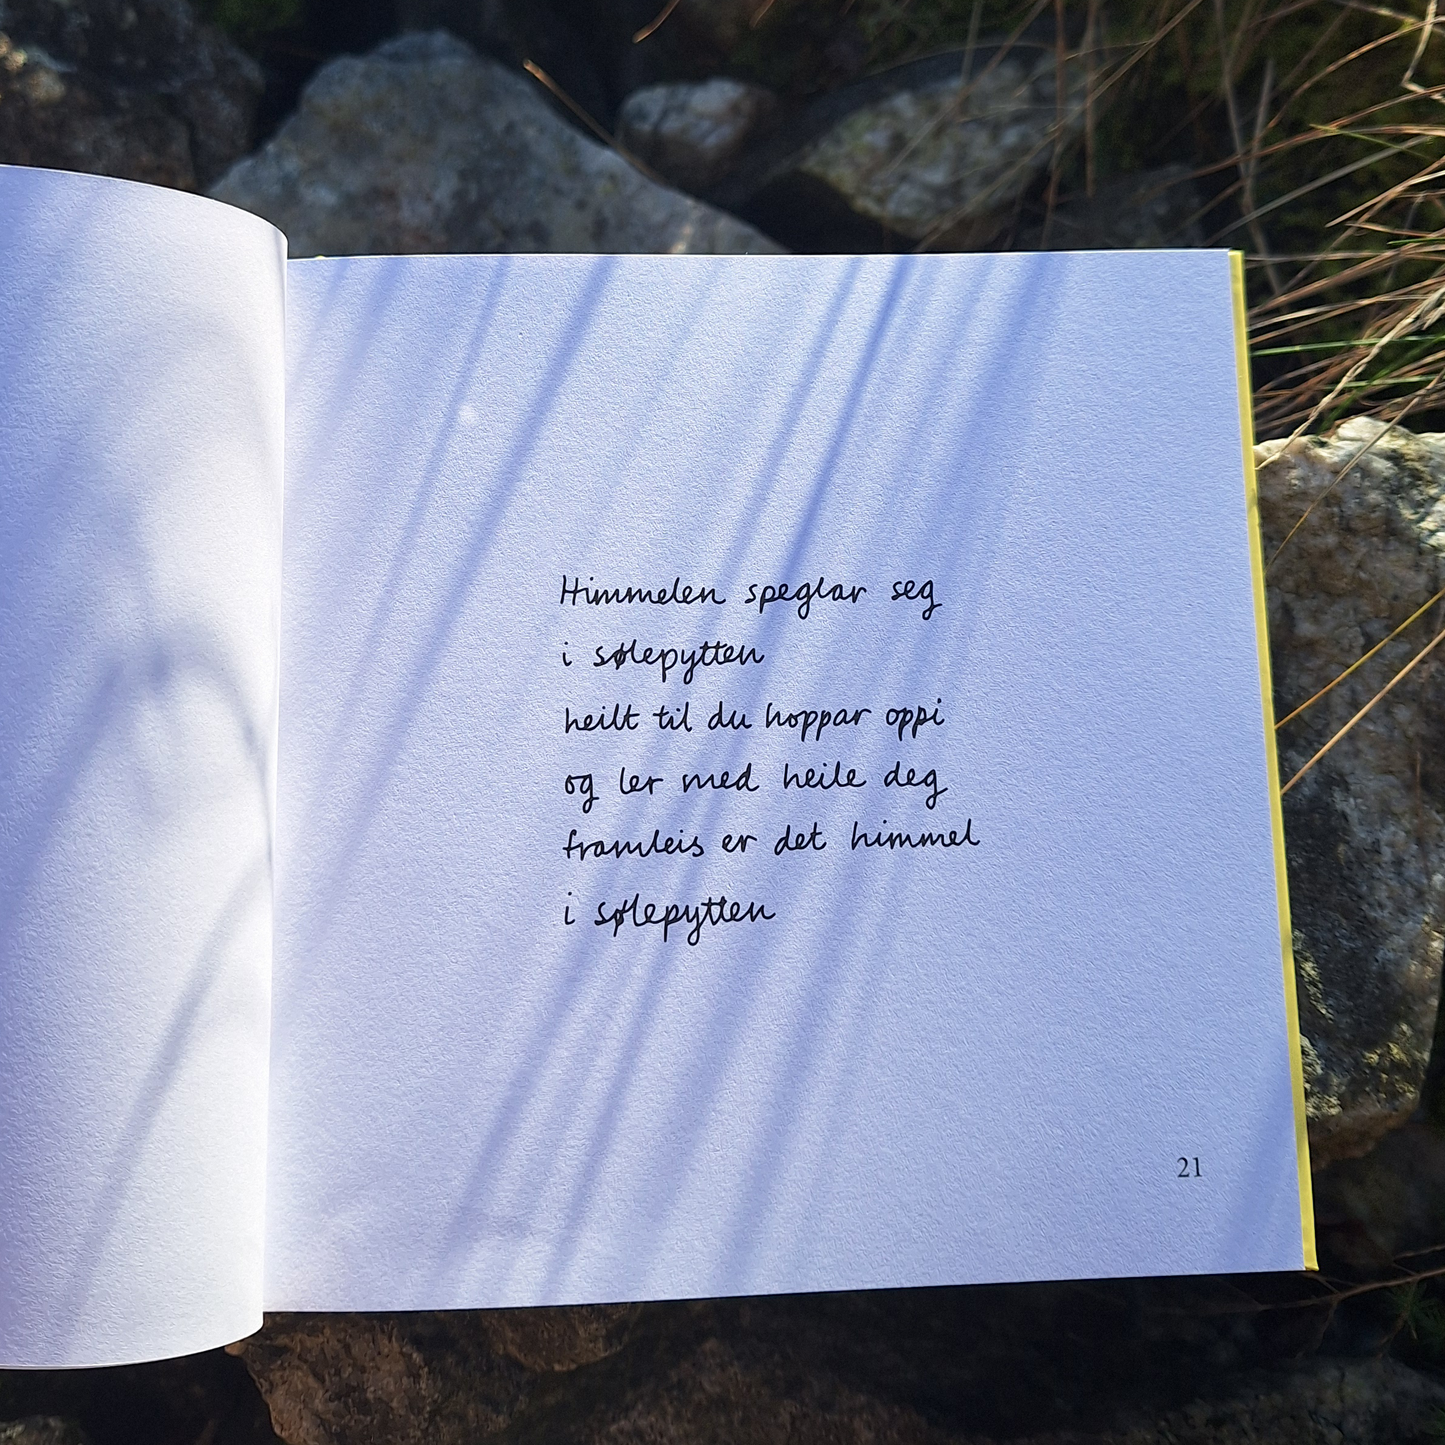 Himmelen speglar seg
i sølepytten
heilt til du hoppar oppi
og ler med heile deg
framleis er det himmel
i sølepytten
21